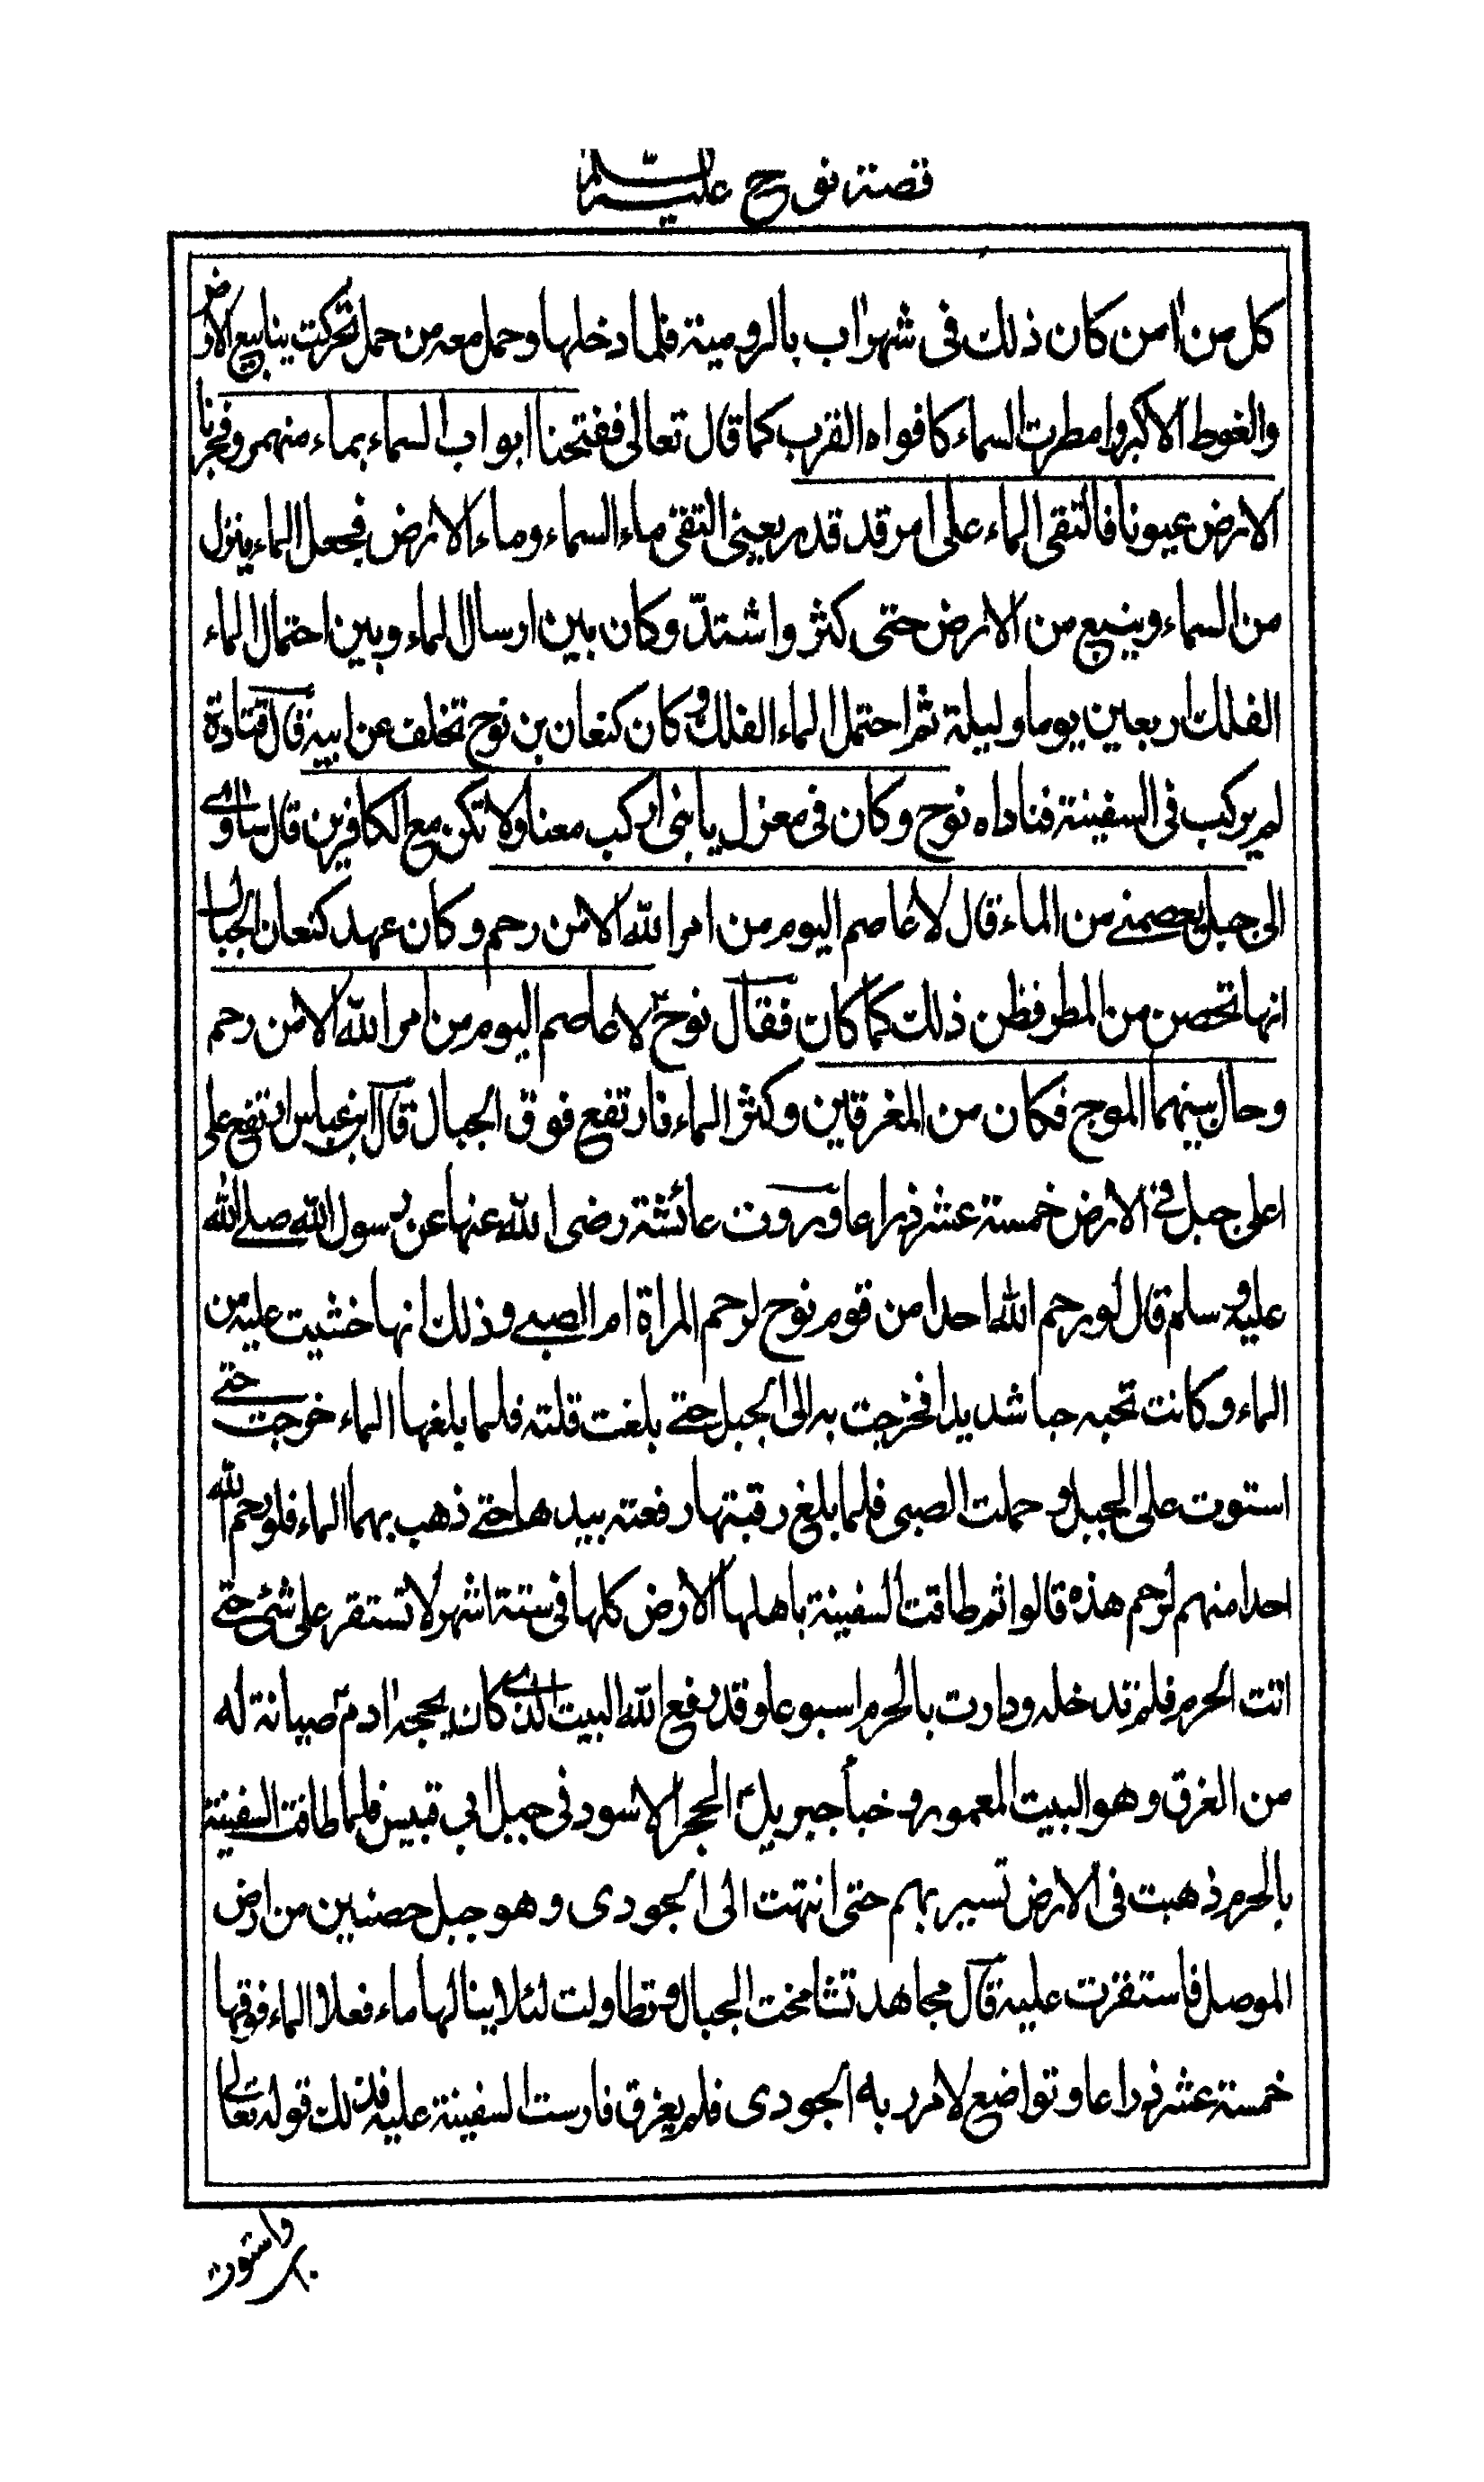 قصة نوح عليه السلام
كل من اٰمن كان ذلك فى شهر اٰب بالرومية فلما دخلها وحمل معه من حمل تحركت ينابيع الارض
والغوط الاكبر وامطرت السماء كافواه القرب كما قال تعالى ففتحنا ابواب السماء بماء منهمر وفجرنا
الارض عيونا فالتقى الماء على امر قد قدر يعنى التقى ماء السماء وماء الارض فجعل الماء ينزل
من السماء وينبع من الارض حتى كثر واشتدّ وكان بين ارسال الماء وبين احتمال الماء
الفلك اربعين يوما وليلة ثم احتمل الماء الفلك وكان كنعان بن نوح تخلف عن ابيه قال قتادة
لم يركب فى السفينة فناداه نوح وكان فى معزل يا بنى اركب معنا ولا تكن مع الكافرين قال ساٰوى
الى جبل يعصمنے من الماء قال لا عاصم اليوم من امر الله الا من رحم وكان عهد كنعان الجبال
انها تحصن من المطر فظن ذلك كما كان فقال نوحؑ لا عاصم اليوم من امر الله الا من رحم
وحال بينهما الموج فكان من المغرقين وكثر الماء فارتفع فوق الجبال قال ابن عباس ارتفع على
اعلى جبل فے الارض خمسة عشر ذراعا وروت عائشة رضى الله عنها عن رسول الله صلے الله
عليه وسلم قال لو رحم الله احدا من قوم نوح لرحم المراة ام الصبے وذلك انها خشيت عليه من
الماء وكانت تحبه حبا شديدا فخرجت به الى الجبل حتے بلغت قلته فلما بلغها الماء خرجت حتے
استوت على الجبل وحملت الصبى فلما بلغ رقبتها رفعته بيدها حتے ذهب بهما الماء فلو رحم الله
احدا منهم لرحم هذه قالوا ثم طافت السفينة باهلها الارض كلها فى ستة اشهر لا تستقر على شئ حتے
اتت الحرم فلم تدخله ودارت بالحرم اسبوعا وقد رفع الله البيت الذے كان يحجه اٰدمؑ صيانة له
من الغرق وهو البيت المعمور وخبأ جبريلؑ الحجر الاسود فى جبل ابى قبيس فلما طافت السفينة
بالحرم ذهبت فى الارض تسير بهم حتى انتهت الى الجودى وهو جبل حصنين من ارض
الموصل فاستقرت عليه قال مجاهد تشامخت الجبال وتطاولت لئلا ينالها ماء فعلا الماء فوقها
خمسة عشر ذراعا وتواضع لامر ربه الجودى فلم يغرق فارست السفينة عليه فذلك قوله تعالى
واستوت